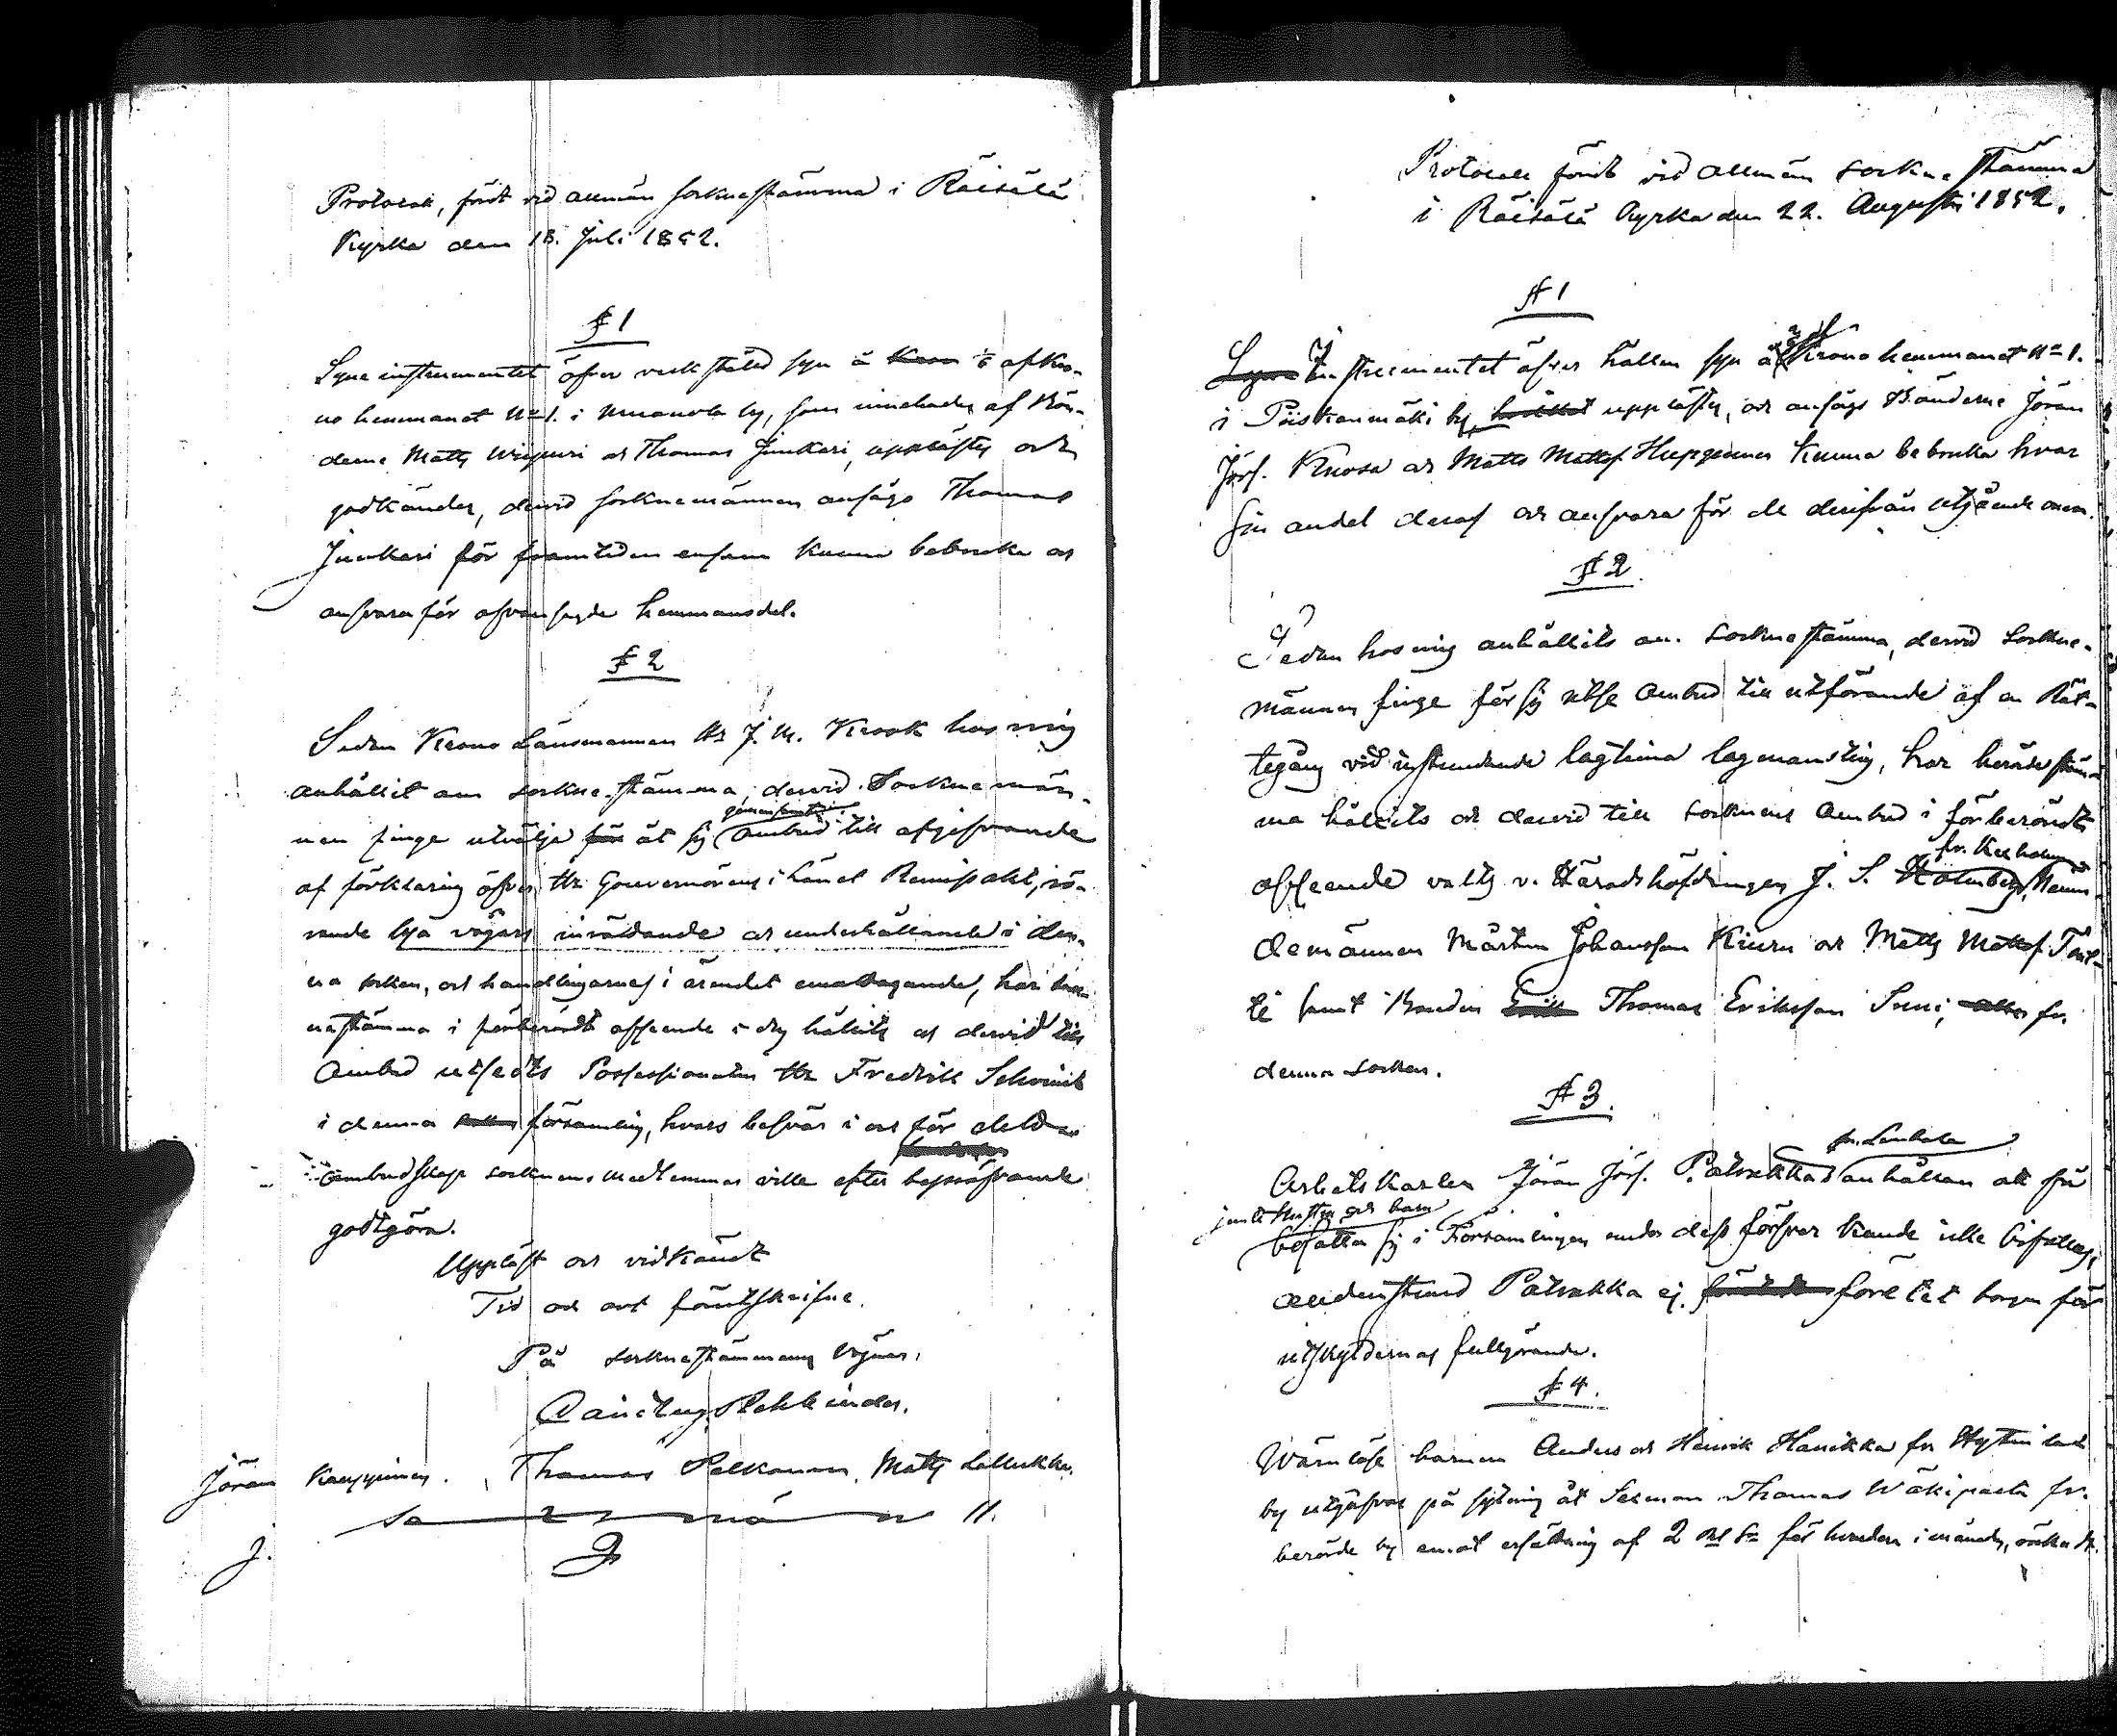 Protocoll, fördt vid allmän sockenestämma i Räisälä
Kyrka den 18. Juli 1852.
§ 1
Syne instrumentet öfver verkstäld syn å 1/6 af Kro-
no hemmanet No 1. i Unnunkola by, som innehades af Bön-
derne Matts Wiipuri och Thomas Junkari, upplästes och
godkändes, dervid socknemännen ansågo Thomas
Junkari för framtiden ensam kunna bebruka och
ansvara för ofvansagde hemmansdel.
§ 2
Sedan Krono Länsmannen Hr J. M. Krook hos mig
anhållit om sockne stämma, dervid Sockne män-
nen finge utvälja för åt sig gemensamt ombud till afgifvande
af förklaring öfver Hr Gouverneurens i Länet Remissakt, rö-
rande bya vägars inrättande och underhållande i den-
na socken, och handlingarnes i ärendet emottagande, har sock-
nestämma i förberördt afseende i dag hållits och dervid till
Ombud utsedts Possessionaten Hr Fredrik Schvindt
i denna församling, hvars besvär i och för detta
ombudskap socknens medlemmar ville efter bepröfvande
godtgöra.
Uppläst och vidkändt
Tid och ort föruts krifne.
På socknestämmans vägnar,
Rehbinder.
Jöran Kauppinen. Thomas Pelkonen, Matts Lallukka,
So ck ne mä n n
J.
Protocoll fördt vid allmän sockne stämma
i Räisälä Kyrka den 22. Augusti 1852.
§ 1
Syne Instrumentet öfver hållen syn å Krono hemmanet No 1.
i Piiskanmäki by upplästes, och ansågs Bönderne Jöran
Jörs. Knosa och Matts Mattss. Huppoinen kunna bebruka hvar
sin andel deraf och ansvara för de derifrån utgående onera.
§ 2.
Sedan hos mig anhållits om sockne stämma, dervid sockne-
männen finge för sig utse Ombud till utförande af en Rät-
tegång vid instundande lagtima lagmansting, har berörde stäm-
ma hållits och dervid till socknens Ombud i förberördt
afseende valts v. Häradshöfdingen J. S. Holmberg fr. Kexholm, Nämn-
demännen Mårten Johansson Kiuru och Matts Mattss.
samt Bonden Thomas Eriksson Suni, fr.
denna socken.
§ 3.
Arbetskarlen Jöran Jörs. Patrakkas fr. anhållan att få
jemte hustru och barn
bosätta sig i Församlingen under dess försvar kunde icke bifallas,
alldenstund Patrakka ej företet borgen för
utskyldernas fullgörande.
§ 4.
Wärnlöse barnen Anders och Henrik Hanikka fr. Hytinlaks
by utgåfvos på sytning åt Sexman Thomas Wäkiparta fr.
berörde by emot ersättning af 2 Rbl Sr för hvardera i månad, räknadt